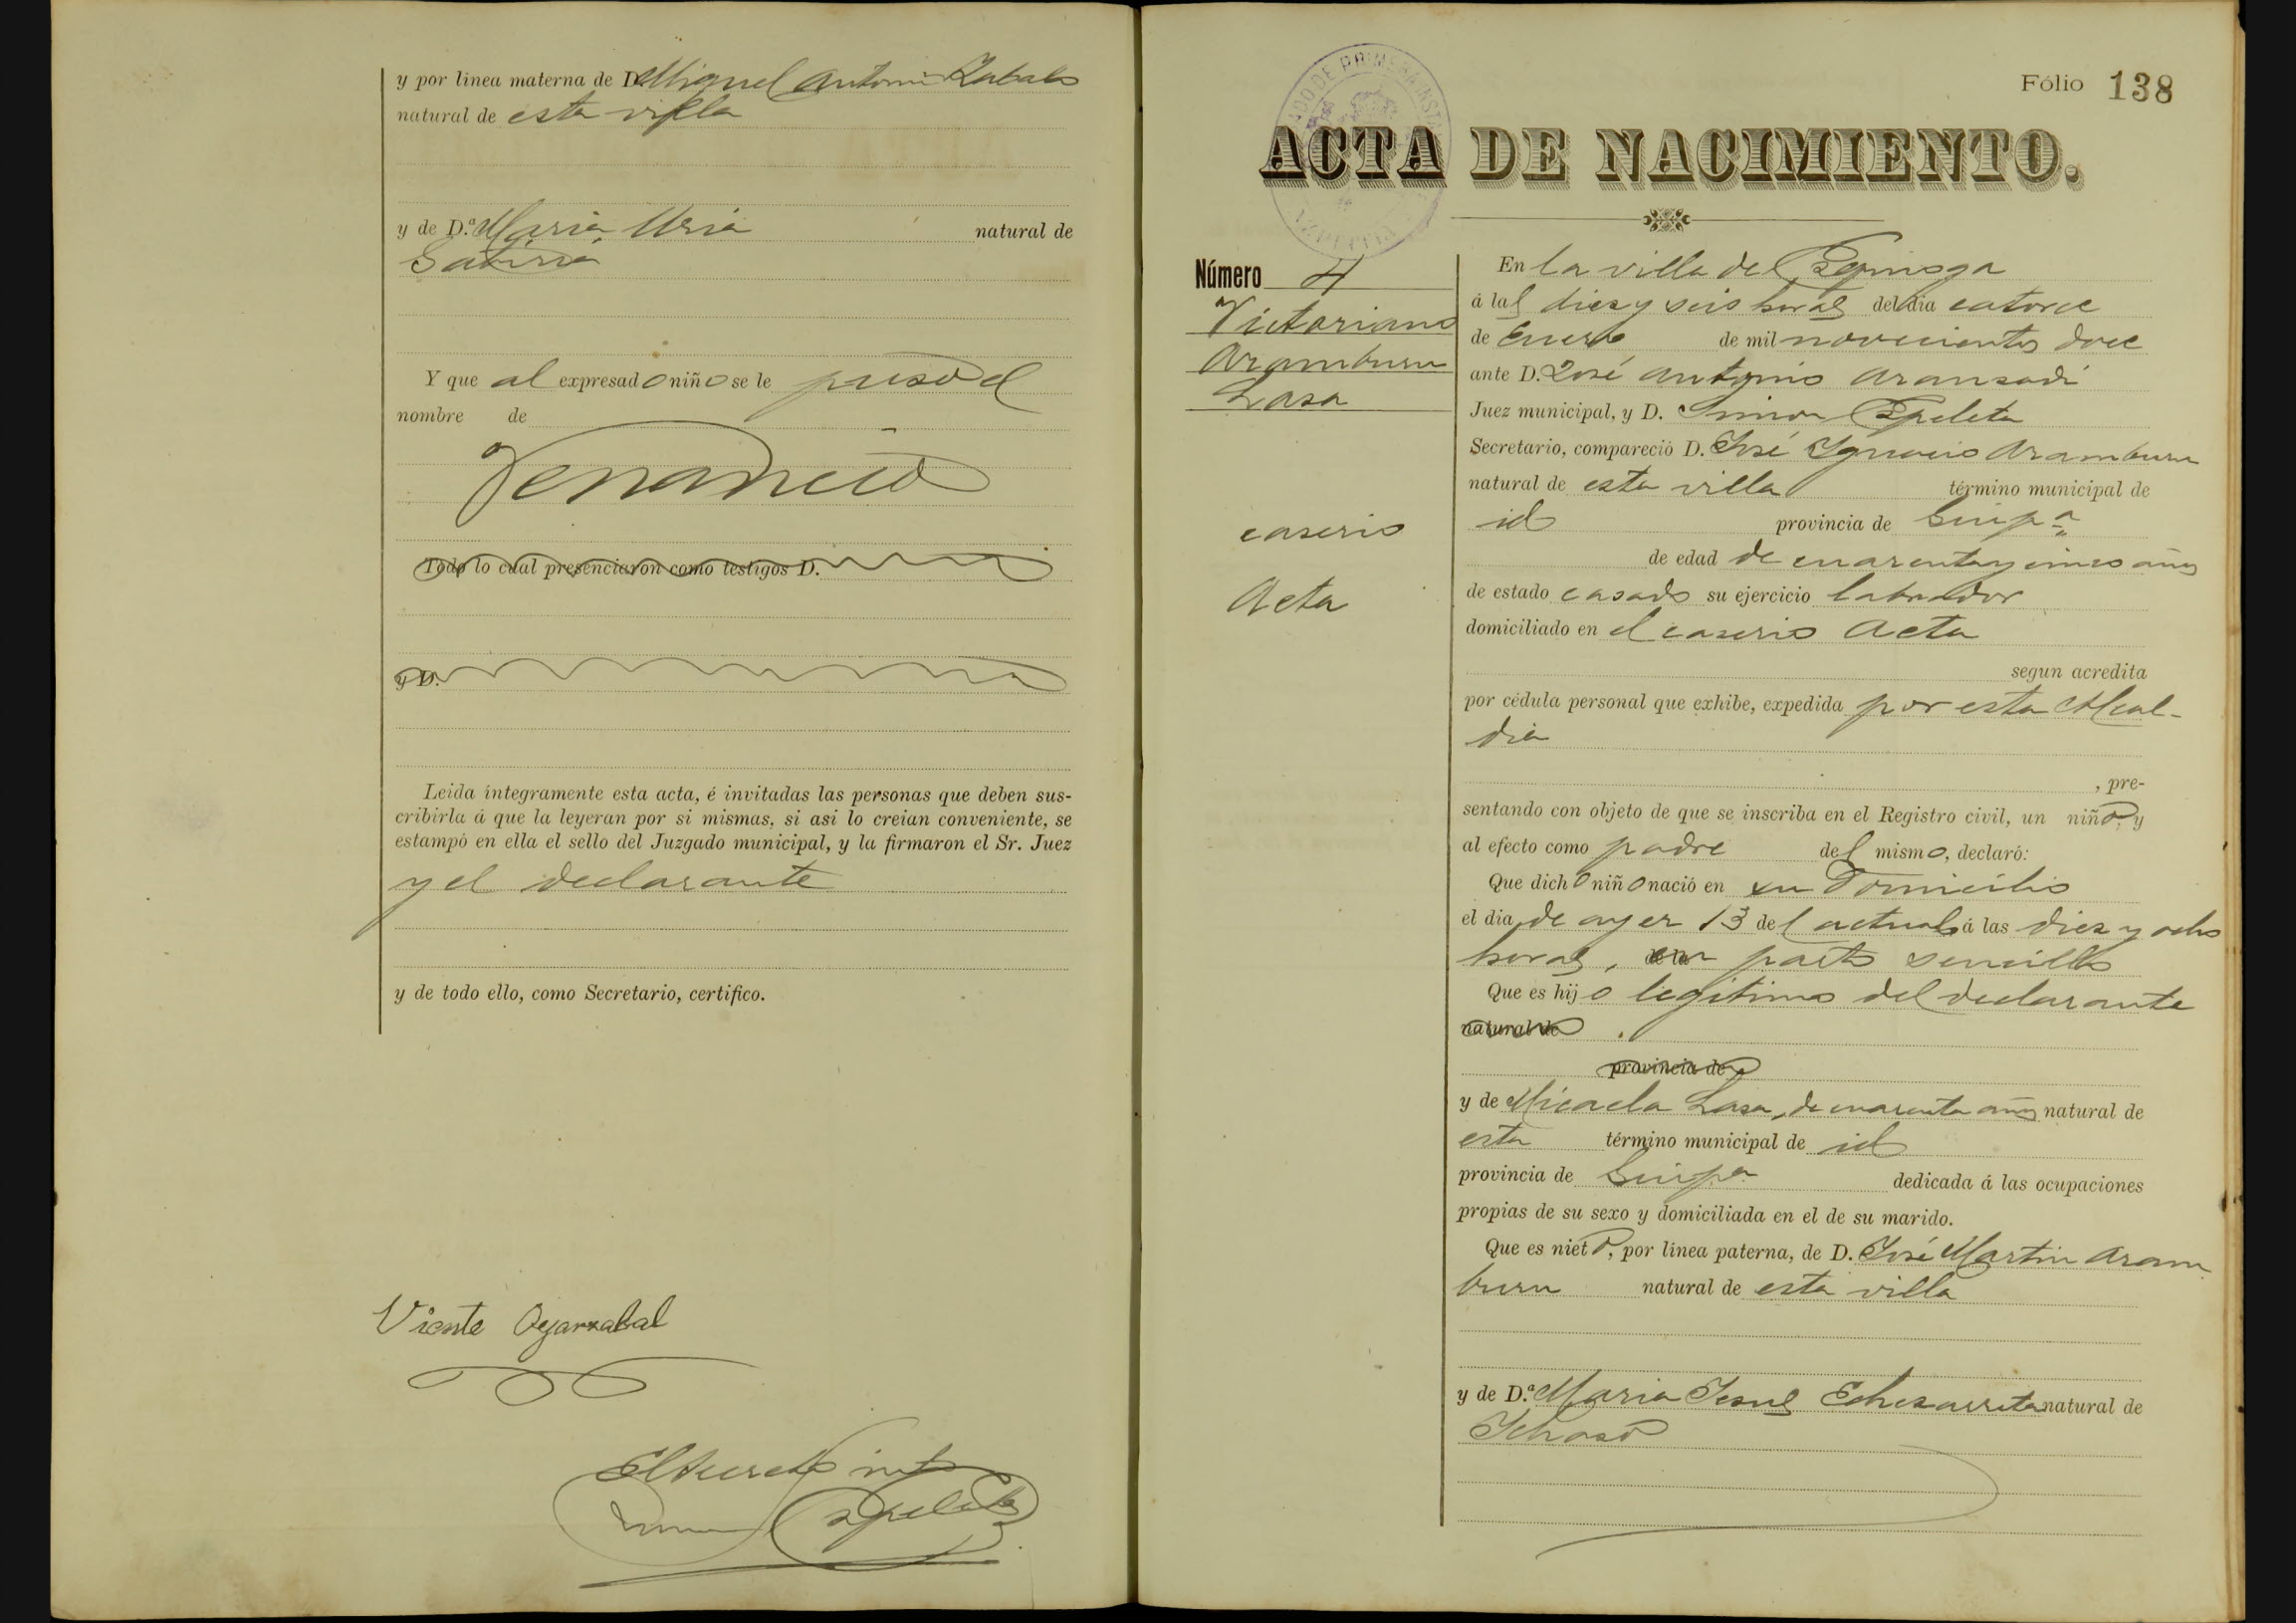 y por linea materna de D. Miguel Antonio Zabala
natural de esta villa
y de D.ª Maria Uria natural de
Y que al expresado niño se le puso el
nombre de
Venancio
Todo lo cual presenciaron como testigos D.
y D.
Leida íntegramente esta acta, é invitadas las personas que deben sus-
cribirla á que la leyeran por si mismas, si asi lo creian conveniente, se
estampó en ella el sello del Juzgado municipal, y la firmaron el Sr. Juez
y el declarante
y de todo ello, como Secretario, certifico.
Vicente Oyarzabal
Fólio 138
JUZGADO DE PRIMERA INSTANCIA
AZPEITIA
ACTA DE NACIMIENTO.
Número 4
Victoriano
Aramburu
Lasa
caserio
Acta
En la villa de
á las diez y seis horas del dia catorce
de Enero de mil novecientos doce
ante D. José Antonio Aransadi
Juez municipal, y D. Simon Ezpeleta
Secretario, compareció D. José Ignacio Aramburu
natural de esta villa término municipal de
id provincia de Guipª
de edad de cuarenta y cinco años
de estado casado su ejercicio labrador
domiciliado en el caserio Acta
segun acredita
por cédula personal que exhibe, expedida por esta Alcal-
dia
, pre-
sentando con objeto de que se inscriba en el Registro civil, un niño, y
al efecto como padre del mismo, declaró:
Que dicho niño nació en su domicilio
el dia de ayer 13 del actual á las diez y ocho
horas, en parto sencillo
Que es hijo legitimo del declarante
natural de
provincia de
y de Micaela Lasa, de cuarenta años natural de
esta término municipal de id
provincia de Guipª dedicada á las ocupaciones
propias de su sexo y domiciliada en el de su marido.
Que es nieto, por linea paterna, de D. José Martin Aram
buru natural de esta villa
y de D.ª Maria Jesus Echezarreta natural de
Ichaso